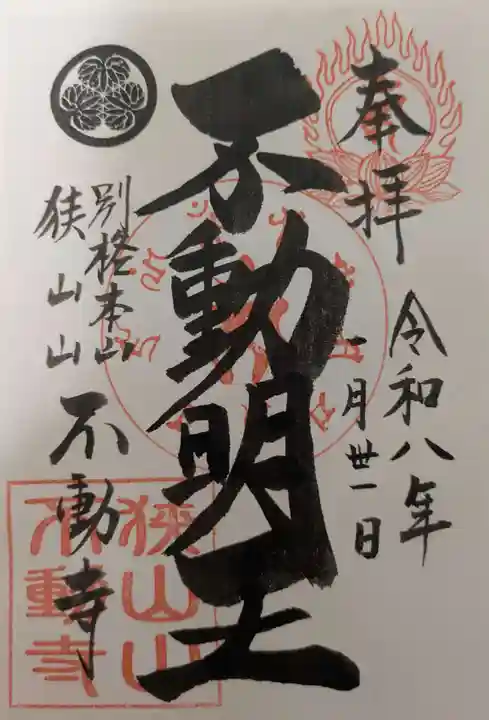 奉拝
令和八年
一月卅一日
不動明王
別格本山
狭山山
不動寺
狭山山
不動寺